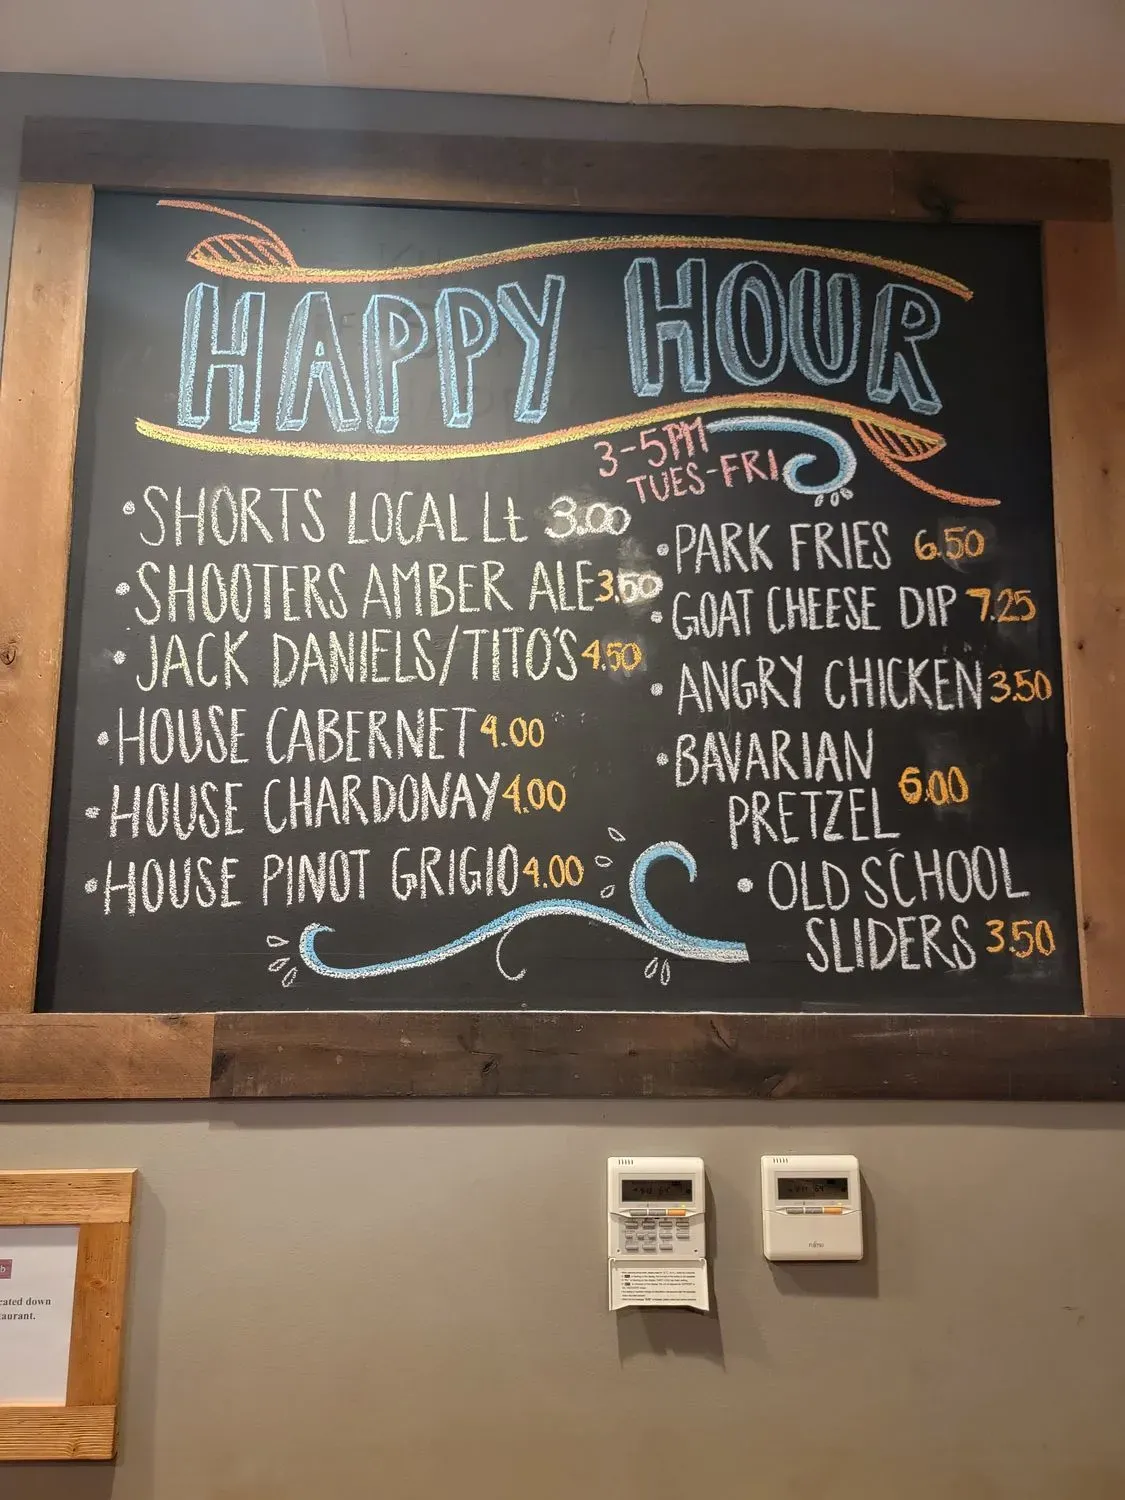 HAPPY HOUR
3-5PM
TUES-FRI
• SHORTS LOCAL Lt 3.00
• SHOOTERS AMBER ALE 3.50
• JACK DANIELS/TITO'S 4.50
• HOUSE CABERNET 4.00
• HOUSE CHARDONAY 4.00
• HOUSE PINOT GRIGIO 4.00
• PARK FRIES 6.50
• GOAT CHEESE DIP 7.25
• ANGRY CHICKEN 3.50
• BAVARIAN
PRETZEL 6.00
• OLD SCHOOL
SLIDERS 3.50
down
FUJITSU